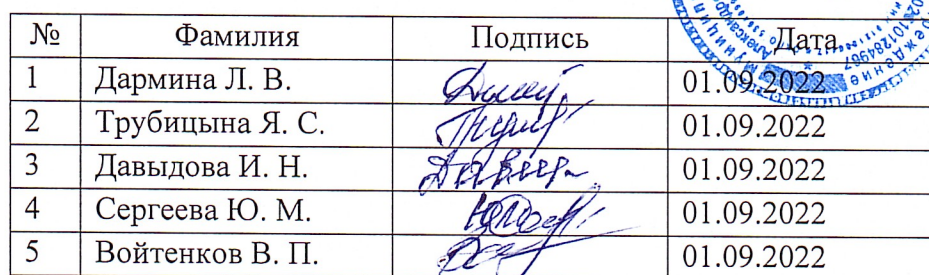 № Фамилия Подпись Дата
1 Дармина Л. В. 01.09.2022
2 Трубицына Я. С. 01.09.2022
3 Давыдова И. Н. 01.09.2022
4 Сергеева Ю. М. 01.09.2022
5 Войтенков В. П. 01.09.2022